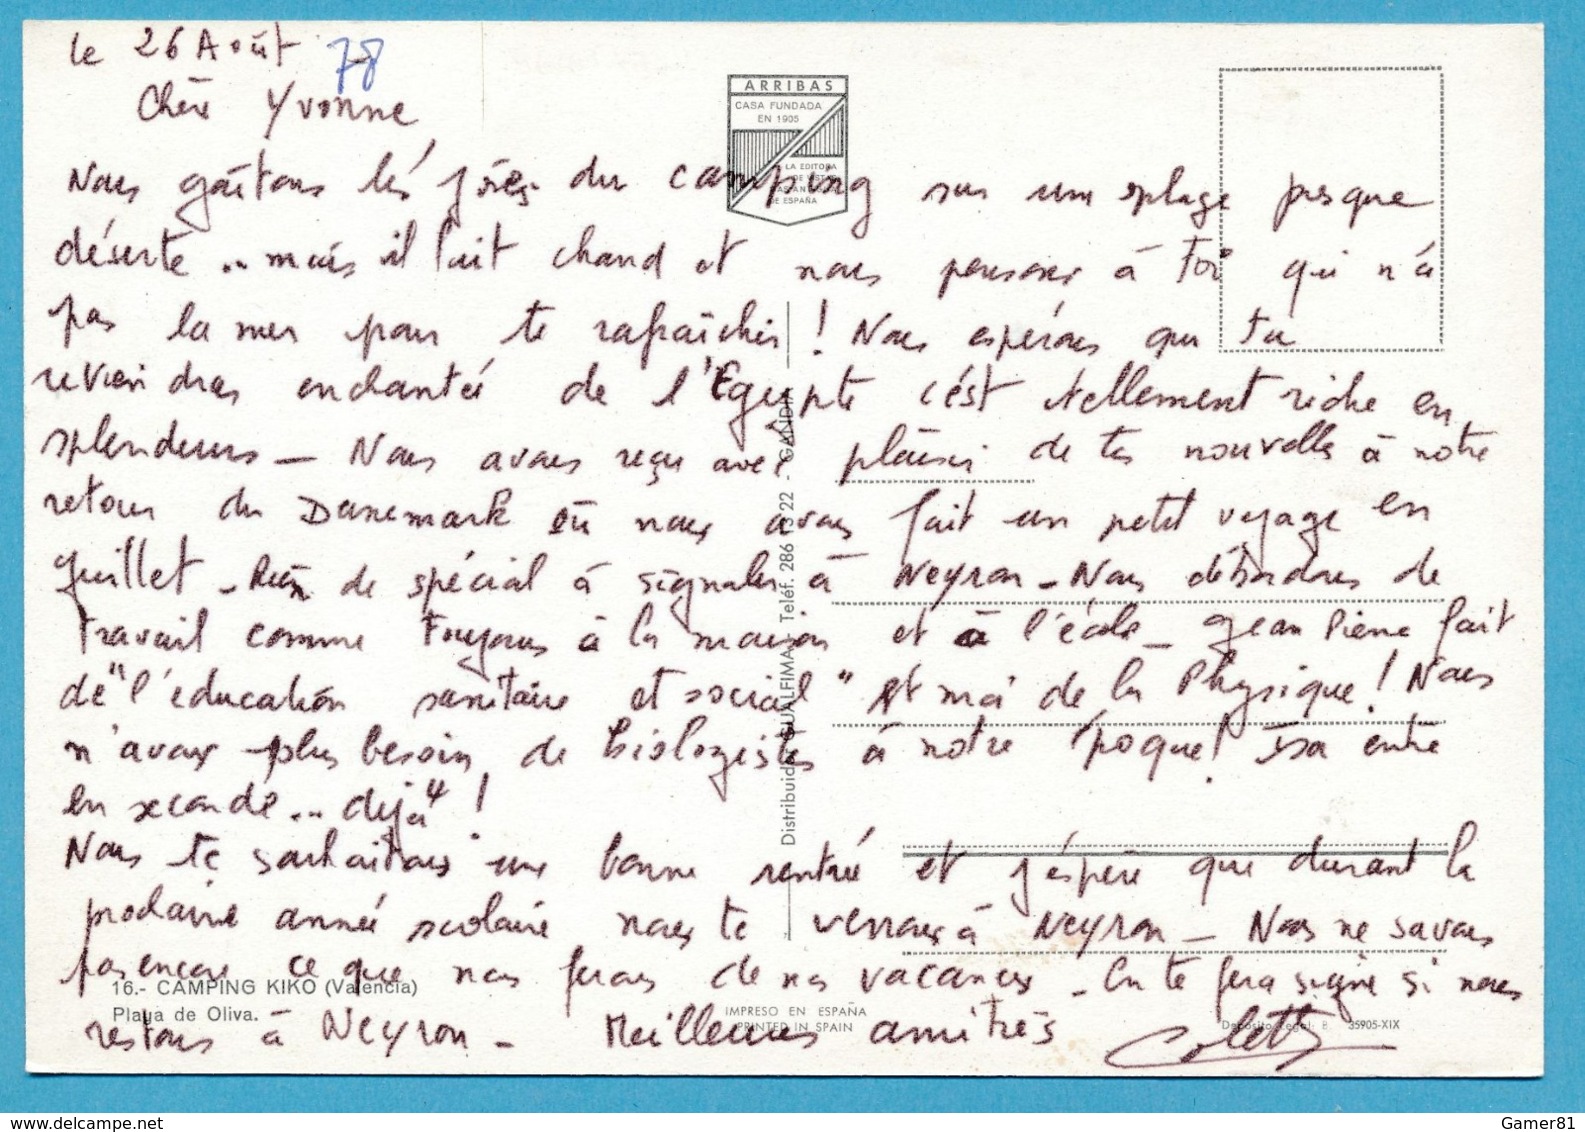 le 26 Août 78
Chère Yvonne
ARRIBAS
CASA FUNDADA
EN 1905
LA EDITORA
DE ESPAÑA
Nous goûtons les joies du camping sur une plage presque
déserte .. mais il fait chaud et nous pensons à Toi qui n'a
pas la mer pour te rafraîchir ! Nous espérons que tu
reviendras enchantée de l'Egypte c'est tellement riche en
splendeurs - Nous avons reçu avec plaisir de tes nouvelles à notre
retour du Danemark où nous avons fait un petit voyage en
Juillet - Rien de spécial à signaler à Neyron - Nous débordons de
Travail comme Toujours à la maison et à l'école - Jean Pierre fait
de "l'éducation sanitaire et social" et moi de la Physique ! Nous
n'avons plus besoin de biologistes à notre époque ! Isa entre
en seconde ... déjà !
Nous te souhaitons une bonne rentrée et j'espère que durant la
prochaine année scolaire nous te verrons à Neyron - Nous ne savons
pas encore ce que nous ferons de nos vacances - On te fera signe si nous
restons à Neyron - Meilleures amitiés Colette
16.- CAMPING KIKO (Valencia)
Playa de Oliva.
IMPRESO EN ESPAÑA
PRINTED IN SPAIN
Depósito Legal: B. 35905-XIX
Distribuidor GUALFIMAJ Teléf. 286 13 22 - GANDIA
www.delcampe.net
Gamer81